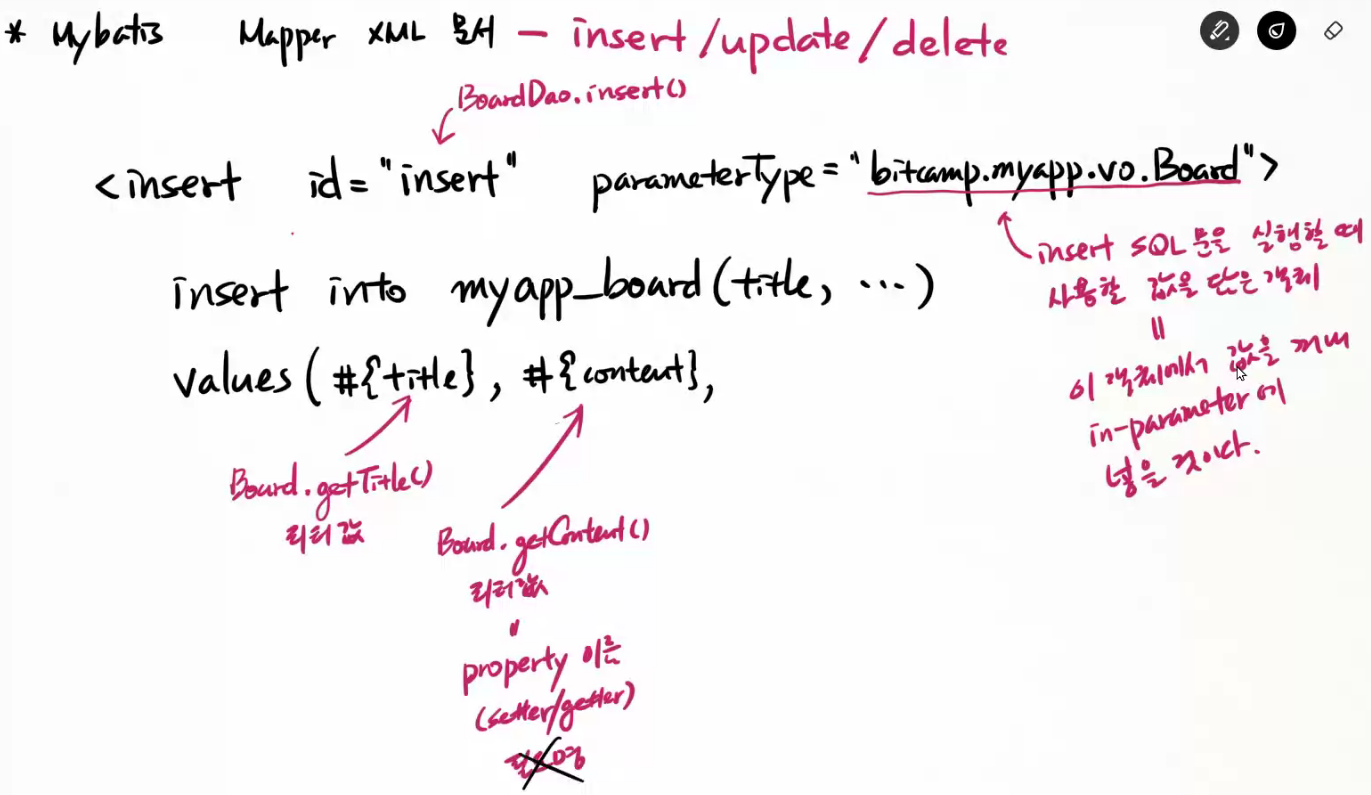 * Mybatis Mapper XML 문서 - insert/update/delete
BoardDao.insert()
<insert id="insert" parameterType="bitcamp.myapp.vo.Board">
insert into myapp_board(title, ...)
values(#{title}, #{content},
insert SQL문을 실행할 때
사용할 값을 담은 객체
=
이 객체에서 값을 꺼내
in-parameter에
넣을 것이다.
Board.getTitle()
리턴 값
Board.getContent()
리턴값
=
property 이름
(setter/getter)
필드명